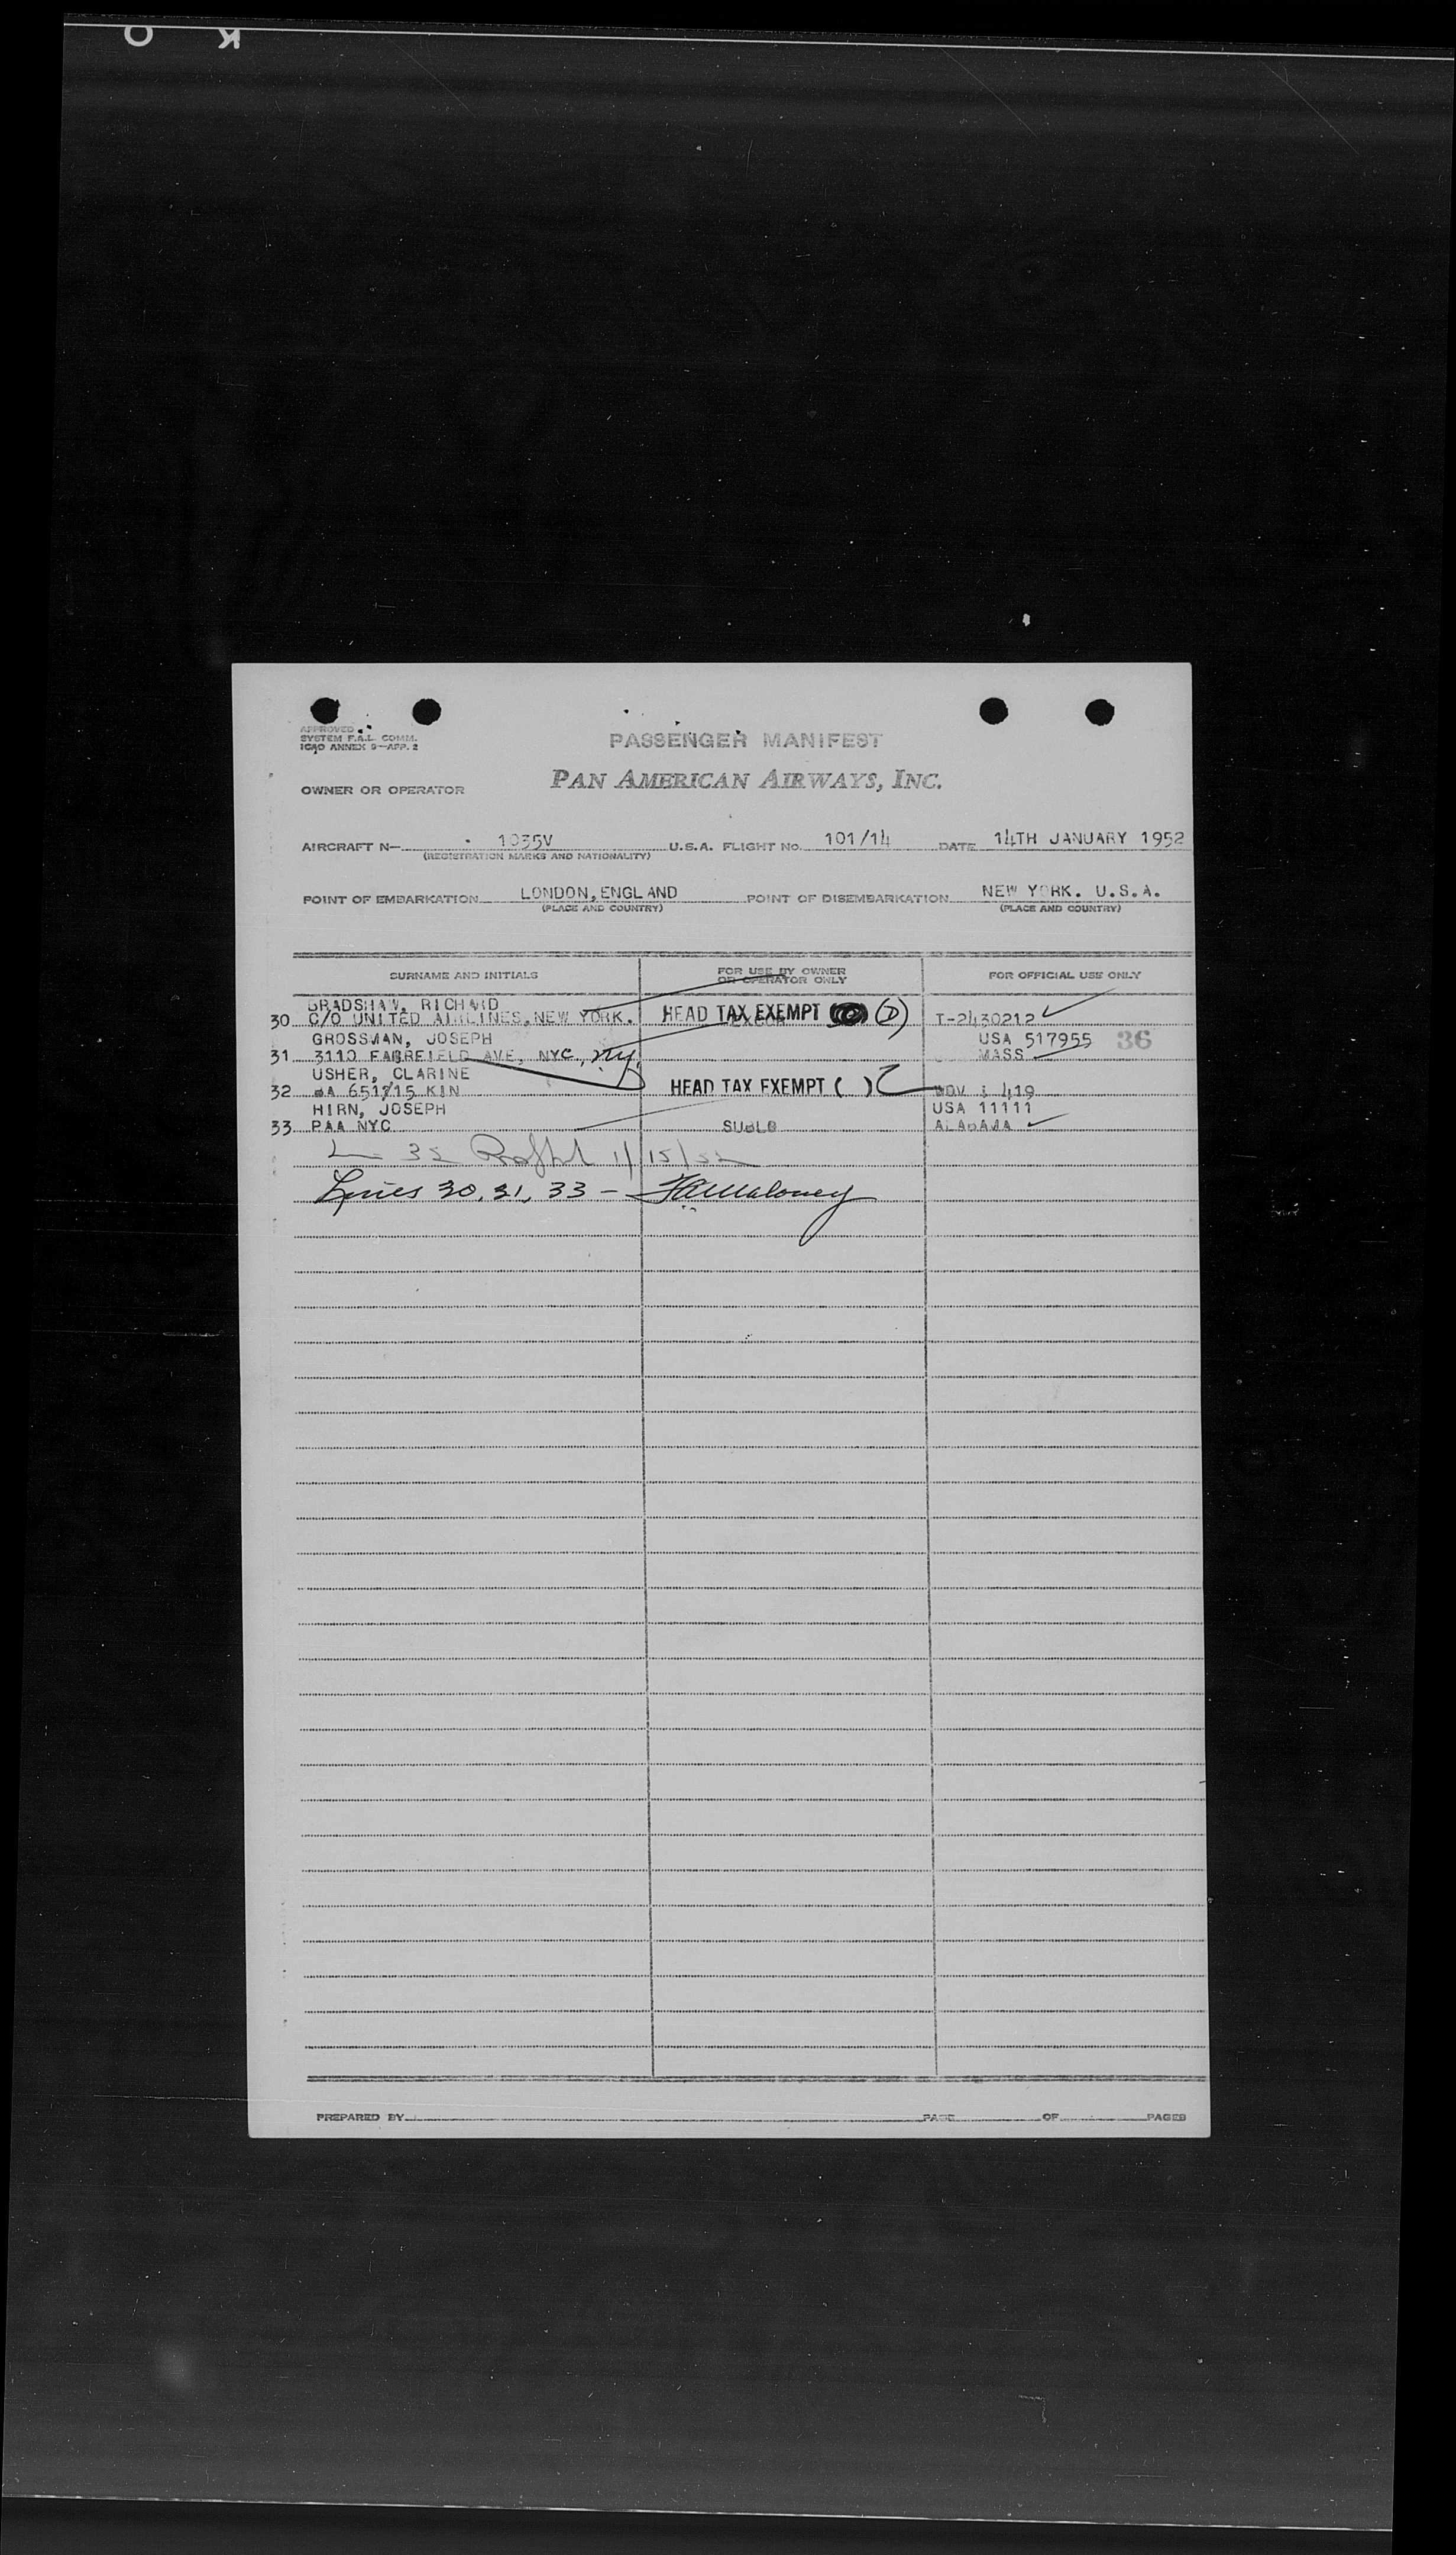 APPROVED
SYSTEM F.A.L. COMM.
ICAO ANNEX 9-APP. 2
PASSENGER MANIFEST
OWNER OR OPERATOR
PAN AMERICAN AIRWAYS, INC.
AIRCRAFT N- 1035V U.S.A. FLIGHT NO. 101/14 DATE 14TH JANUARY 1952
(REGISTRATION MARKS AND NATIONALITY)
POINT OF EMBARKATION LONDON, ENGLAND POINT OF DISEMBARKATION NEW YORK. U.S.A.
(PLACE AND COUNTRY) (PLACE AND COUNTRY)
SURNAME AND INITIALS FOR USE BY OWNER OR OPERATOR ONLY FOR OFFICIAL USE ONLY
BRADSHAW, RICHARD
30 C/O UNITED AIRLINES, NEW YORK. HEAD TAX EXEMPT (D) T-2430212
GROSSMAN, JOSEPH USA 517955 36
31 3110 FAIRFIELD AVE, NYC, NY. MASS
USHER, CLARINE
32 KIN HEAD TAX EXEMPT ( )
HIRN, JOSEPH USA 11111
33 PAA NYC SUBLO ALABAMA
1/15/52
Lines 30, 31, 33 - Maloney
PREPARED BY PAGE OF PAGES